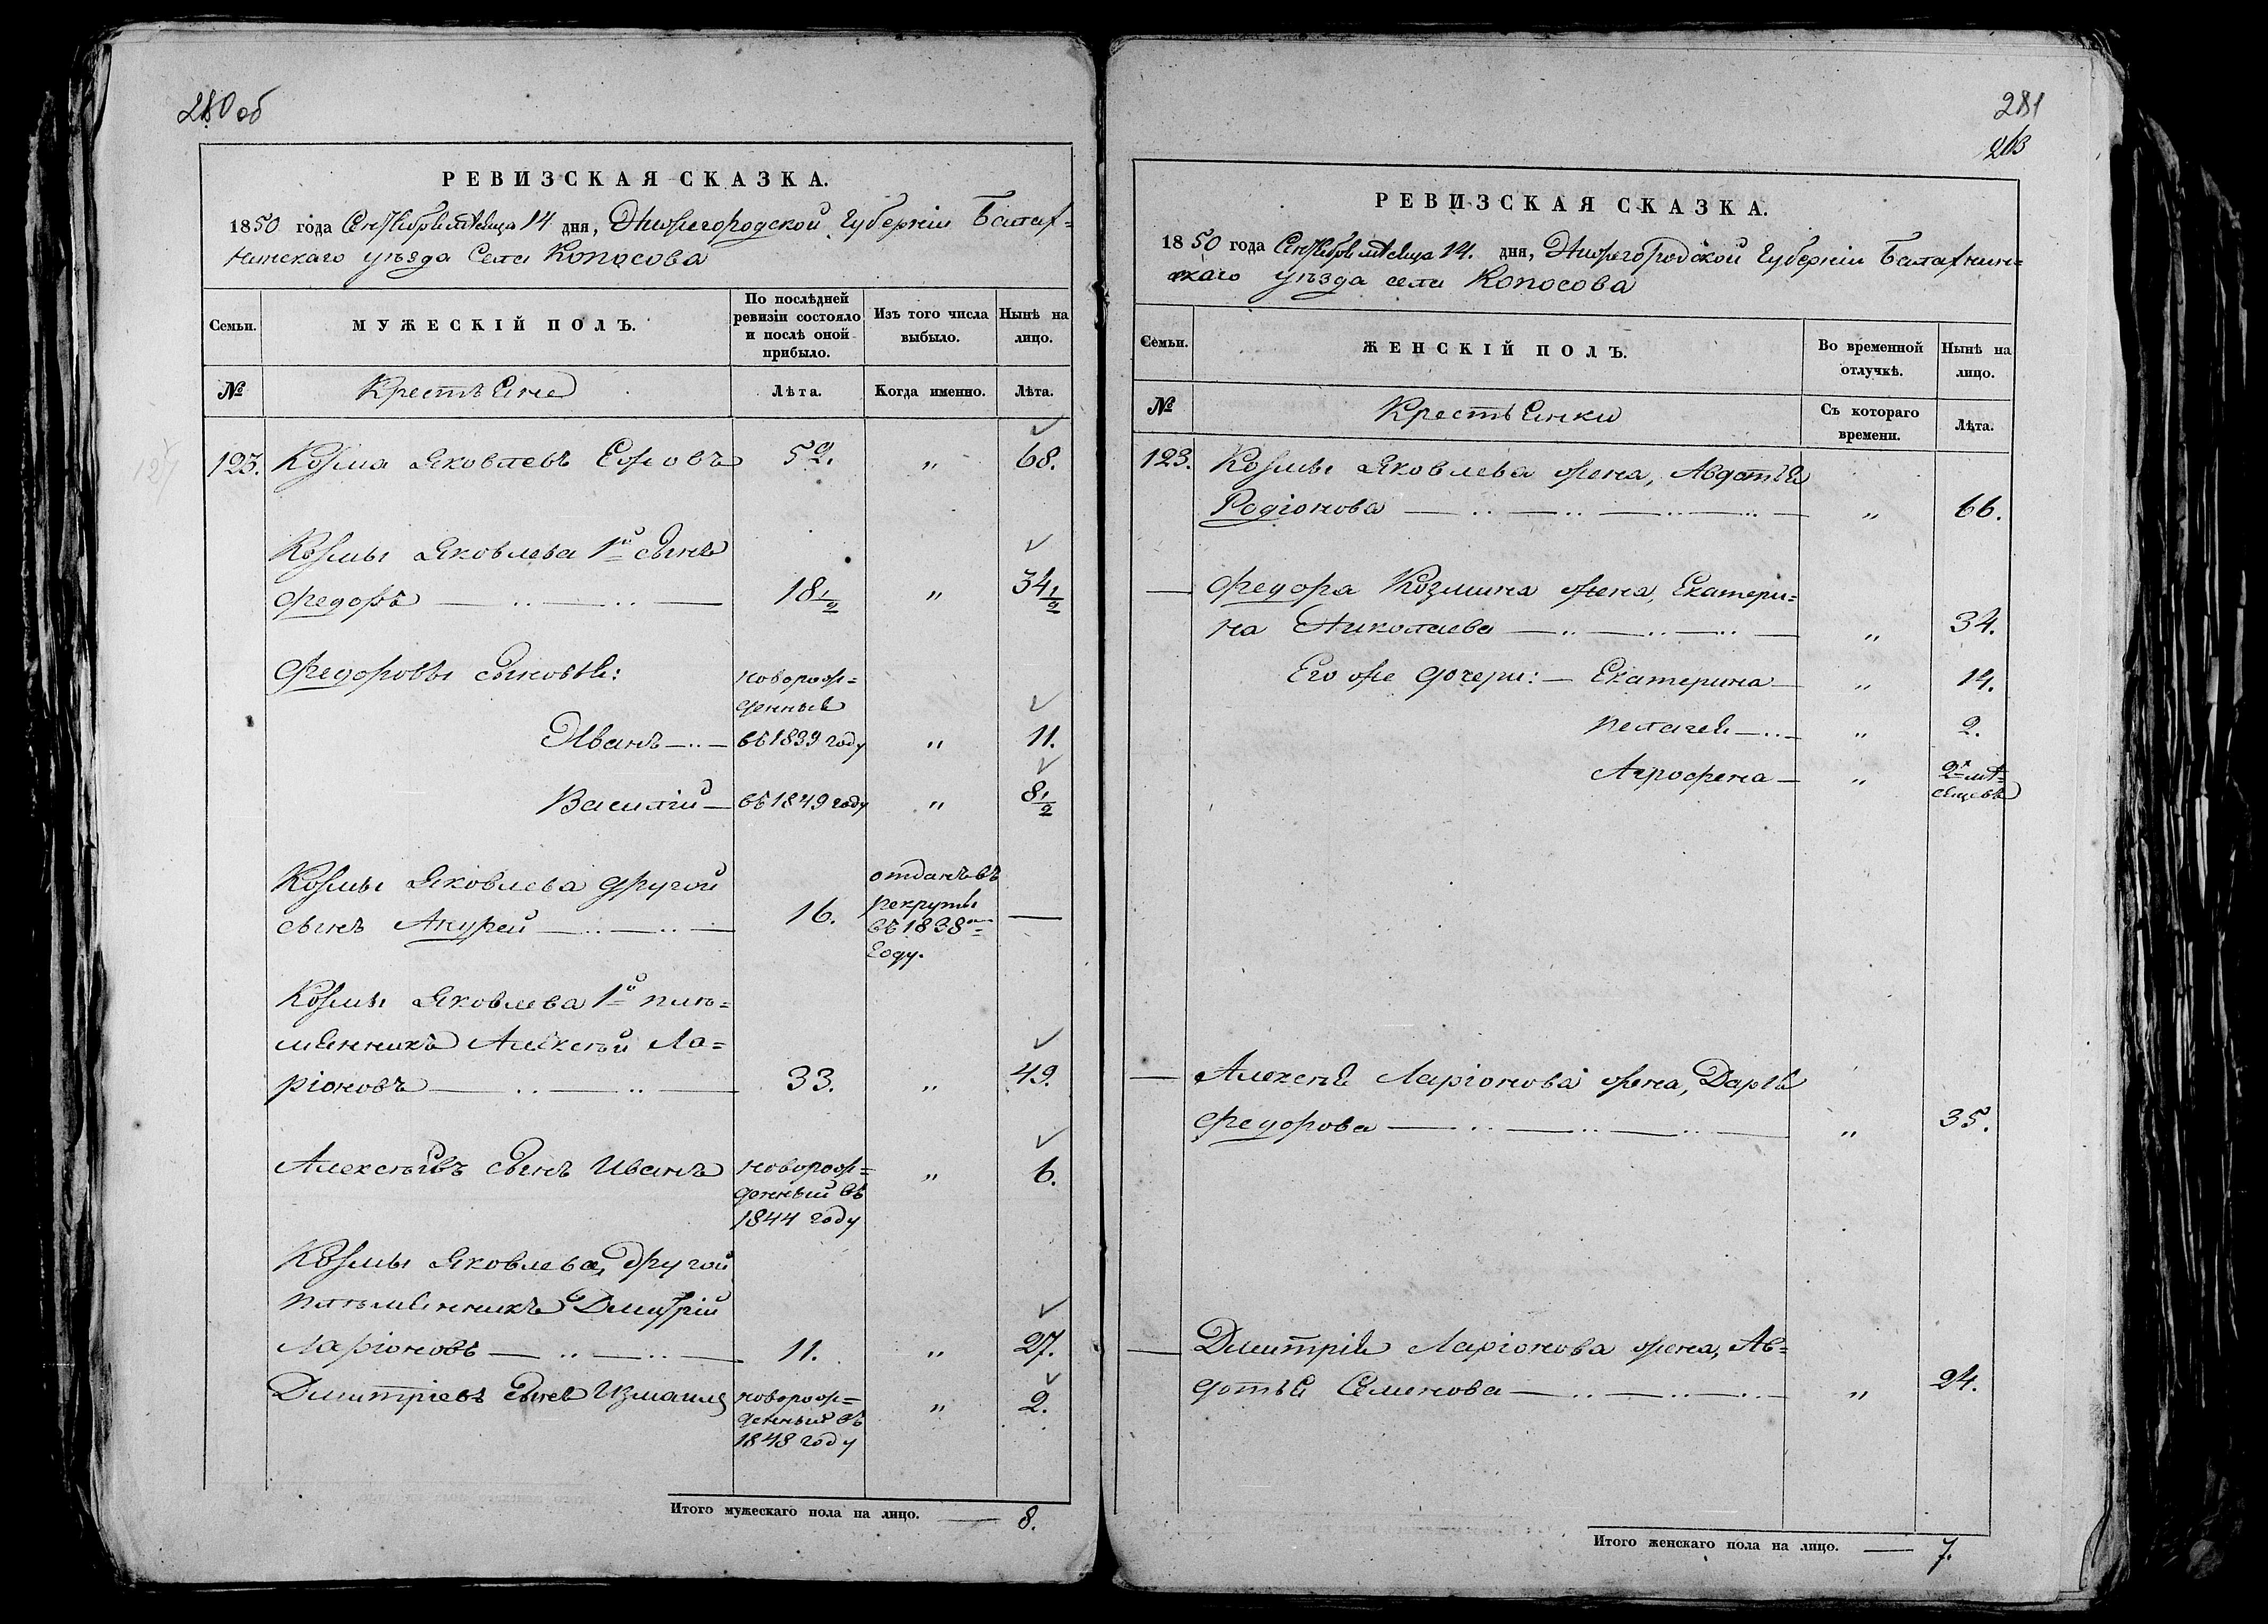 280 об
РЕВИЗСКАЯ СКАЗКА.
1850 года Сентября месяца 14 дня, Нижегородской Губернии Балах=
нинскаго уѣзда Села Копосова
Семьи.
МУЖЕСКІЙ ПОЛЪ.
По послѣдней
ревизіи состояло
и послѣ оной
прибыло.
Изъ того числа
выбыло.
Нынѣ на
лицо.
№
Крестьяне
Лѣта.
Когда именно.
Лѣта.
123. Козма Яковлевъ 52. „ 68.
Козмы Яковлева 1й сынъ
Федоръ 18 1/2 „ 34 1/2
Федоровы сыновья: новорож=
денные
Иванъ въ 1839 году „ 11.
Василій въ 1849 году „ 8 1/2
Козмы Яковлева другой
сынъ Андрей 16.
отданъ въ
рекруты
въ 1838м
году.
Козмы Яковлева 1й плѣ=
мянникъ Алексѣй Ла=
ріоновъ 33. „ 49.
Алексѣевъ сынъ Иванъ новорож=
денный въ
1844 году „ 6.
Козмы Яковлева, другой
плѣмянникъ Дмитрій
Ларіоновъ 11. „ 27.
Дмитріевъ сынъ Измаилъ новорож=
денный въ
1848 году „ 2.
Итого мужескаго пола на лицо. 8.
281
РЕВИЗСКАЯ СКАЗКА.
1850 года Сентября месяца 14. дня, Нижегородской Губерніи Балахнин=
скаго уѣзда села Копосова
Семьи.
ЖЕНСКІЙ ПОЛЪ.
Во временной
отлучкѣ.
Нынѣ на
лицо.
№
Крестьянки
Съ котораго
времени.
Лѣта.
123. Козмы Яковлева жена, Авдотья
Родіонова „ 66.
Федора Козмина жена, Екатери=
на Николаева „ 34.
Его же дочери: Екатерина „ 14.
Пелагея „ 2.
Агрофена „ 2х мѣ=
сяцевъ
Алексѣя Ларіонова жена, Дарья
Федорова „ 35.
Дмитрія Ларіонова жена, Ав=
дотья Семенова „ 24.
Итого женскаго пола на лицо. 7.